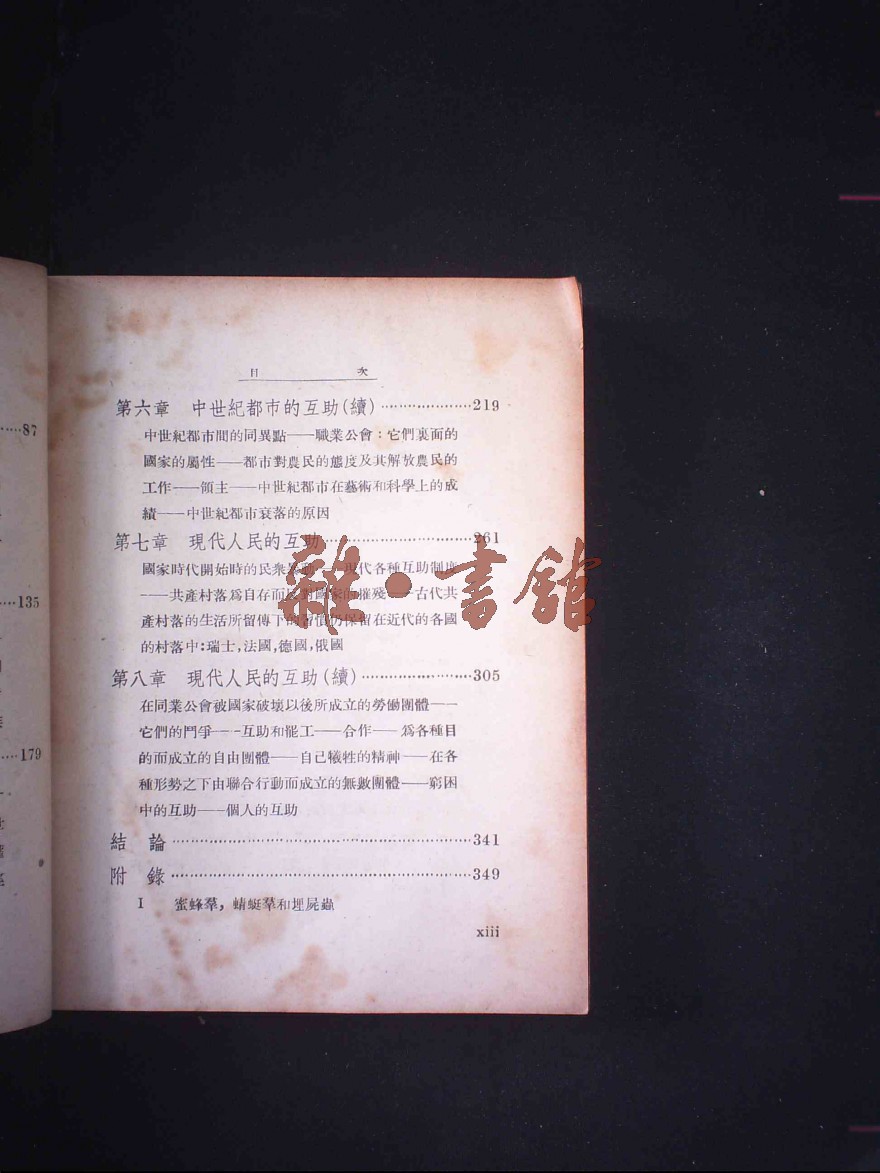 87
135
179
目 次
第六章 中世紀都市的互助(續)····················219
中世紀都市間的同異點——職業公會:它們裏面的
國家的屬性——都市對農民的態度及其解放農民的
工作——領主——中世紀都市在藝術和科學上的成
績——中世紀都市衰落的原因
第七章 現代人民的互助····························261
國家時代開始時的民衆——現代各種互助制度
——共產村落爲自存而反對國家的摧殘——古代共
產村落的生活所留傳下的習慣仍保留在近代的各國
的村落中:瑞士,法國,德國,俄國
第八章 現代人民的互助(續)·······················305
在同業公會被國家破壞以後所成立的勞働團體——
它們的鬥爭——互助和罷工——合作——爲各種目
的而成立的自由團體——自己犧牲的精神——在各
種形勢之下由聯合行動而成立的無數團體——窮困
中的互助——個人的互助
結 論·······················································341
附 錄·······················································349
I 蜜蜂羣,蜻蜓羣和埋屍蟲
xiii
雜·書館